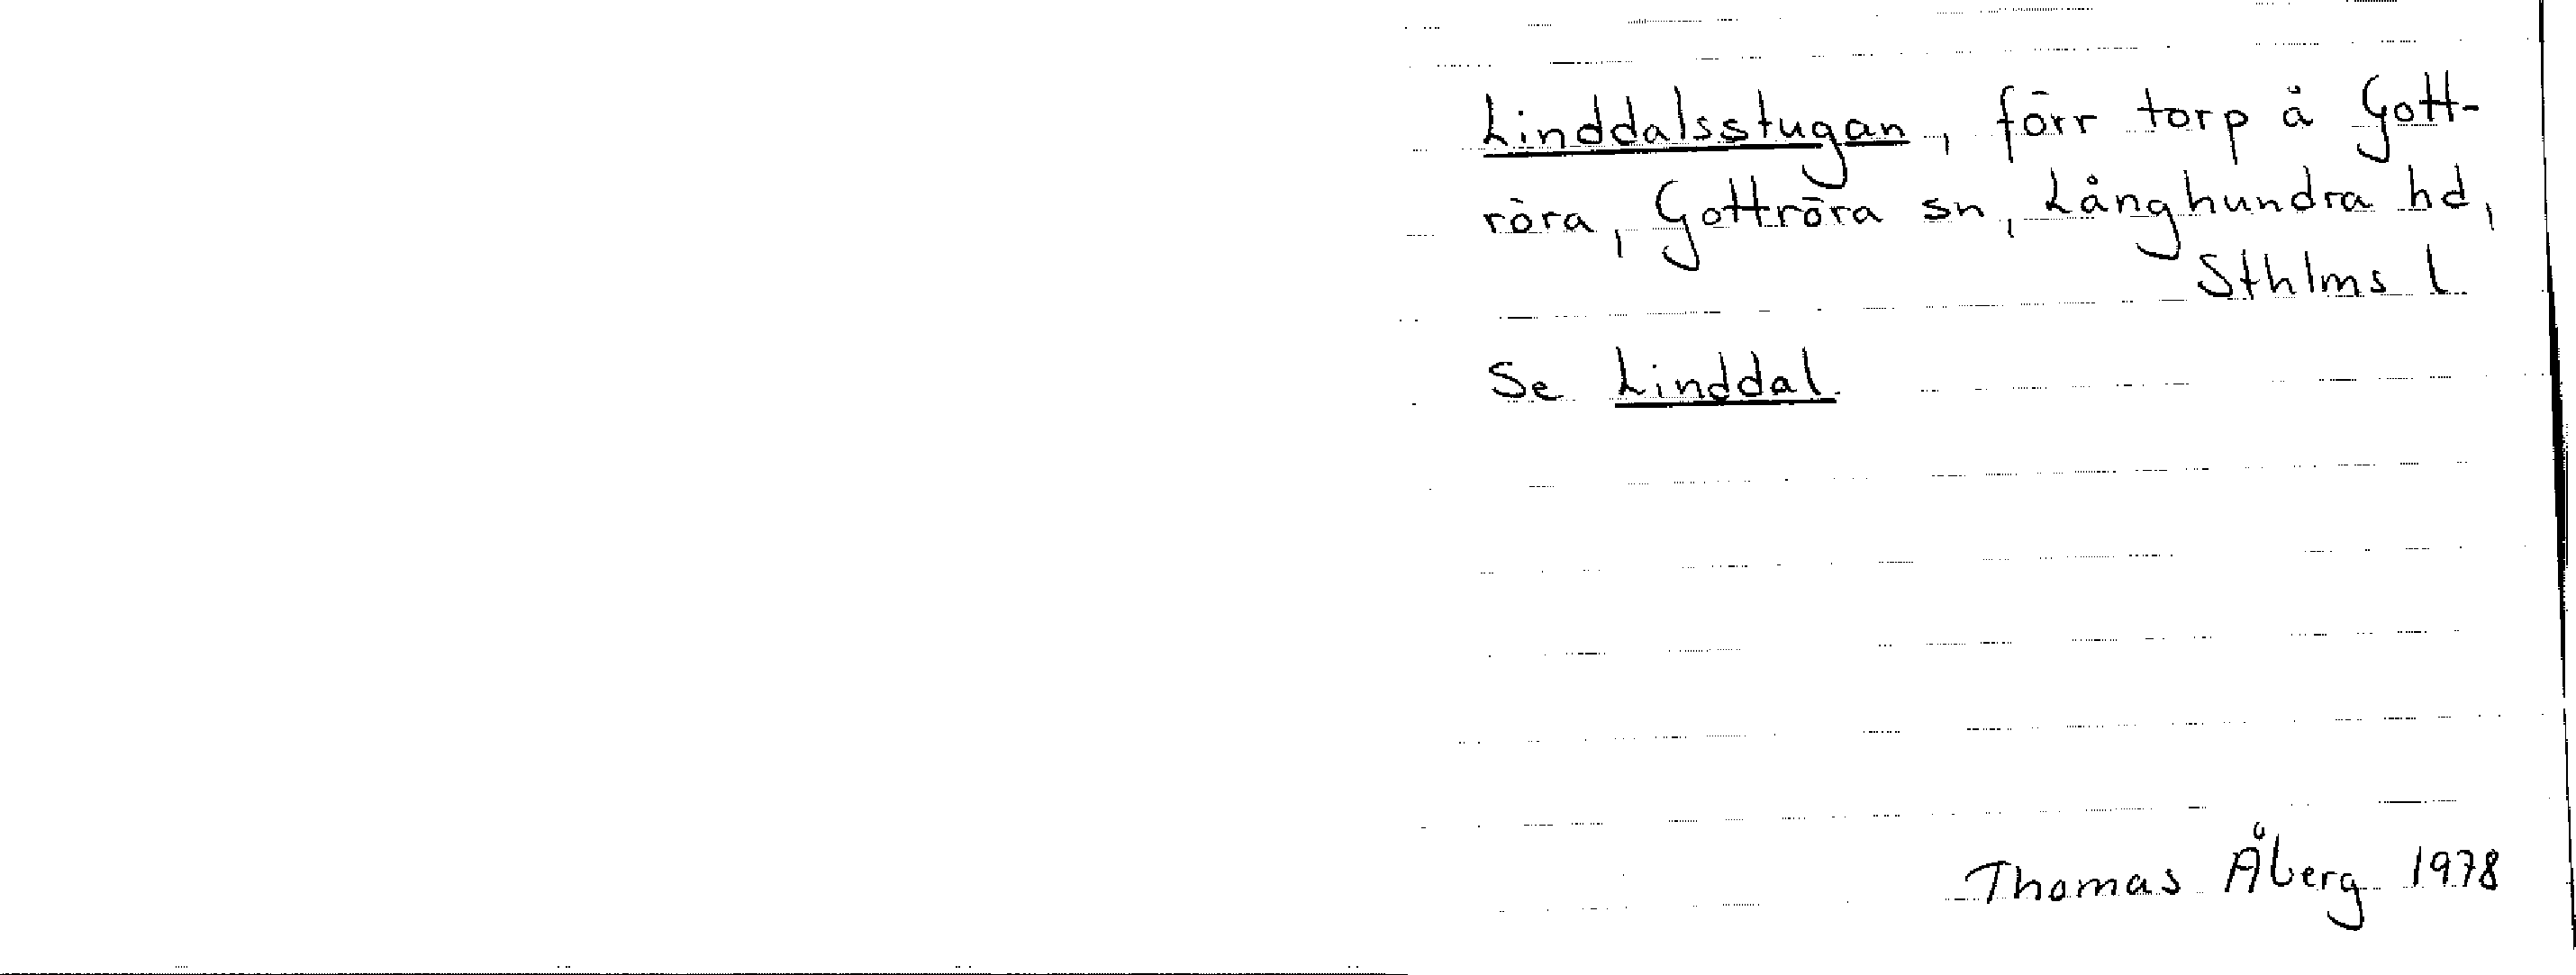 Linddalsstugan, förr torp å Gott-
röra, Gottröra sn, Långhundra hd,
Sthlms l
Se Linddal
Thomas Åberg 1978